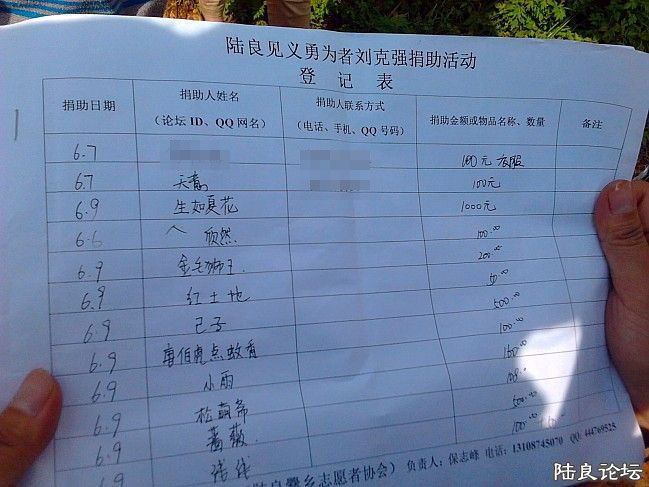 陆良见义勇为者刘克强捐助活动
登记表
捐助日期 捐助人姓名 (论坛 ID、QQ 网名) 捐助人联系方式 (电话、手机、QQ 号码) 捐助金额或物品名称、数量 备注
6.7 100元 衣服
6.7 天意 100元
6.9 生如夏花 1000元
6.6 欣然 100.00
6.9 金毛狮王 200.00
6.9 红土地 50.00
6.9 己子 500.00
6.9 唐伯虎点蚊香 100.00
6.9 小雨
6.9 松
6.9 蔷薇 500.00
6.9 线线 100.00
乡志愿者协会) 负责人:保志峰 电话:13108745070 QQ: 444769525
陆良论坛